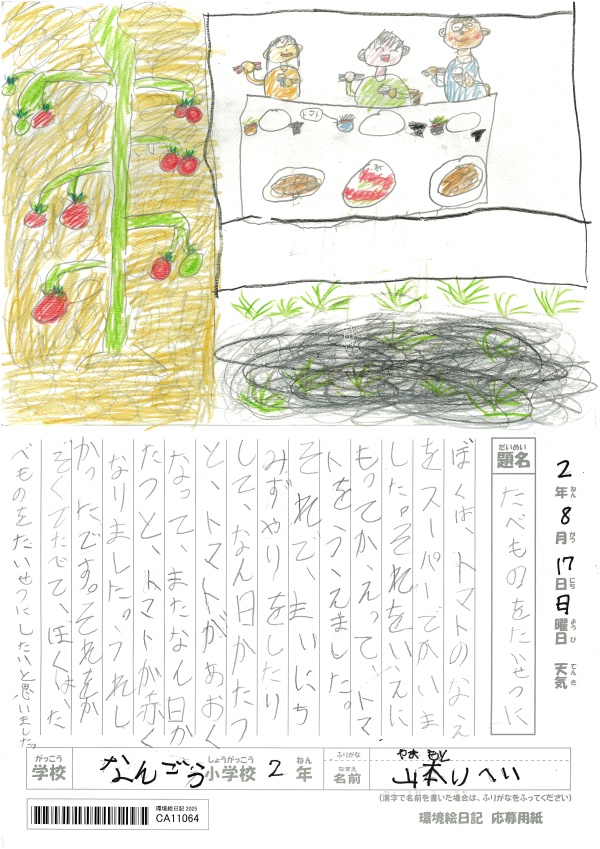 トマト
2年ねん8月がつ17日にち日曜日ようび 天気てんき
題名だいめい
たべものをたいせつに
ぼくは、トマトのなえ
をスーパーでかいま
した。それをいえに
もってかえって、トマ
トをうえました。
それで、まいにち
みずやりをしたり
して、なん日かたつ
と、トマトがあおく
なって、またなん日か
たつと、トマトが赤く
なりました。うれし
かったです。それをか
ぞくでたべて、ぼくは、た
べものをたいせつにしたいと思いました。
がっこう しょうがっこう ねん
学校 なんごう小学校 2年
ふりがな やま もと
なまえ
名前 山本りへい
(漢字で名前を書いた場合は、ふりがなをふってください)
環境絵日記 2025
CA11064
環境絵日記 応募用紙